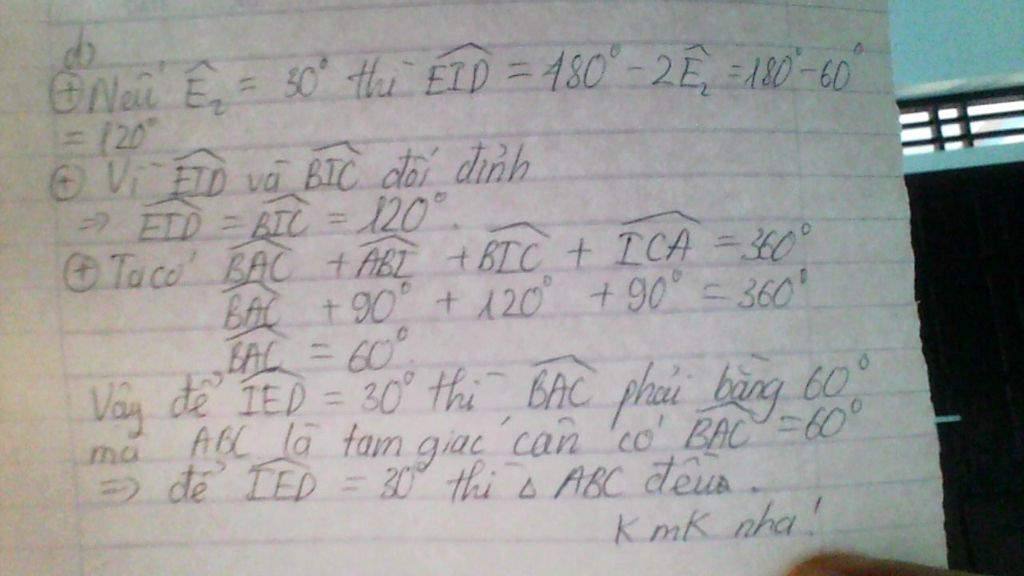 d)
⊕ Nếu Ê₂ = 30° thì \widehat{EID} = 180° - 2Ê₂ = 180° - 60°
= 120°
⊕ Vì \widehat{EID} và \widehat{BIC} đối đỉnh
⇒ \widehat{EID} = \widehat{BIC} = 120°.
⊕ Ta có \widehat{BAC} + \widehat{ABI} + \widehat{BIC} + \widehat{ICA} = 360°
\widehat{BAC} + 90° + 120° + 90° = 360°
\widehat{BAC} = 60°.
Vậy để \widehat{IED} = 30° thì \widehat{BAC} phải bằng 60°
mà ABC là tam giác cân có \widehat{BAC} = 60°
⇒ để \widehat{IED} = 30° thì △ ABC đều.
K mK nha!